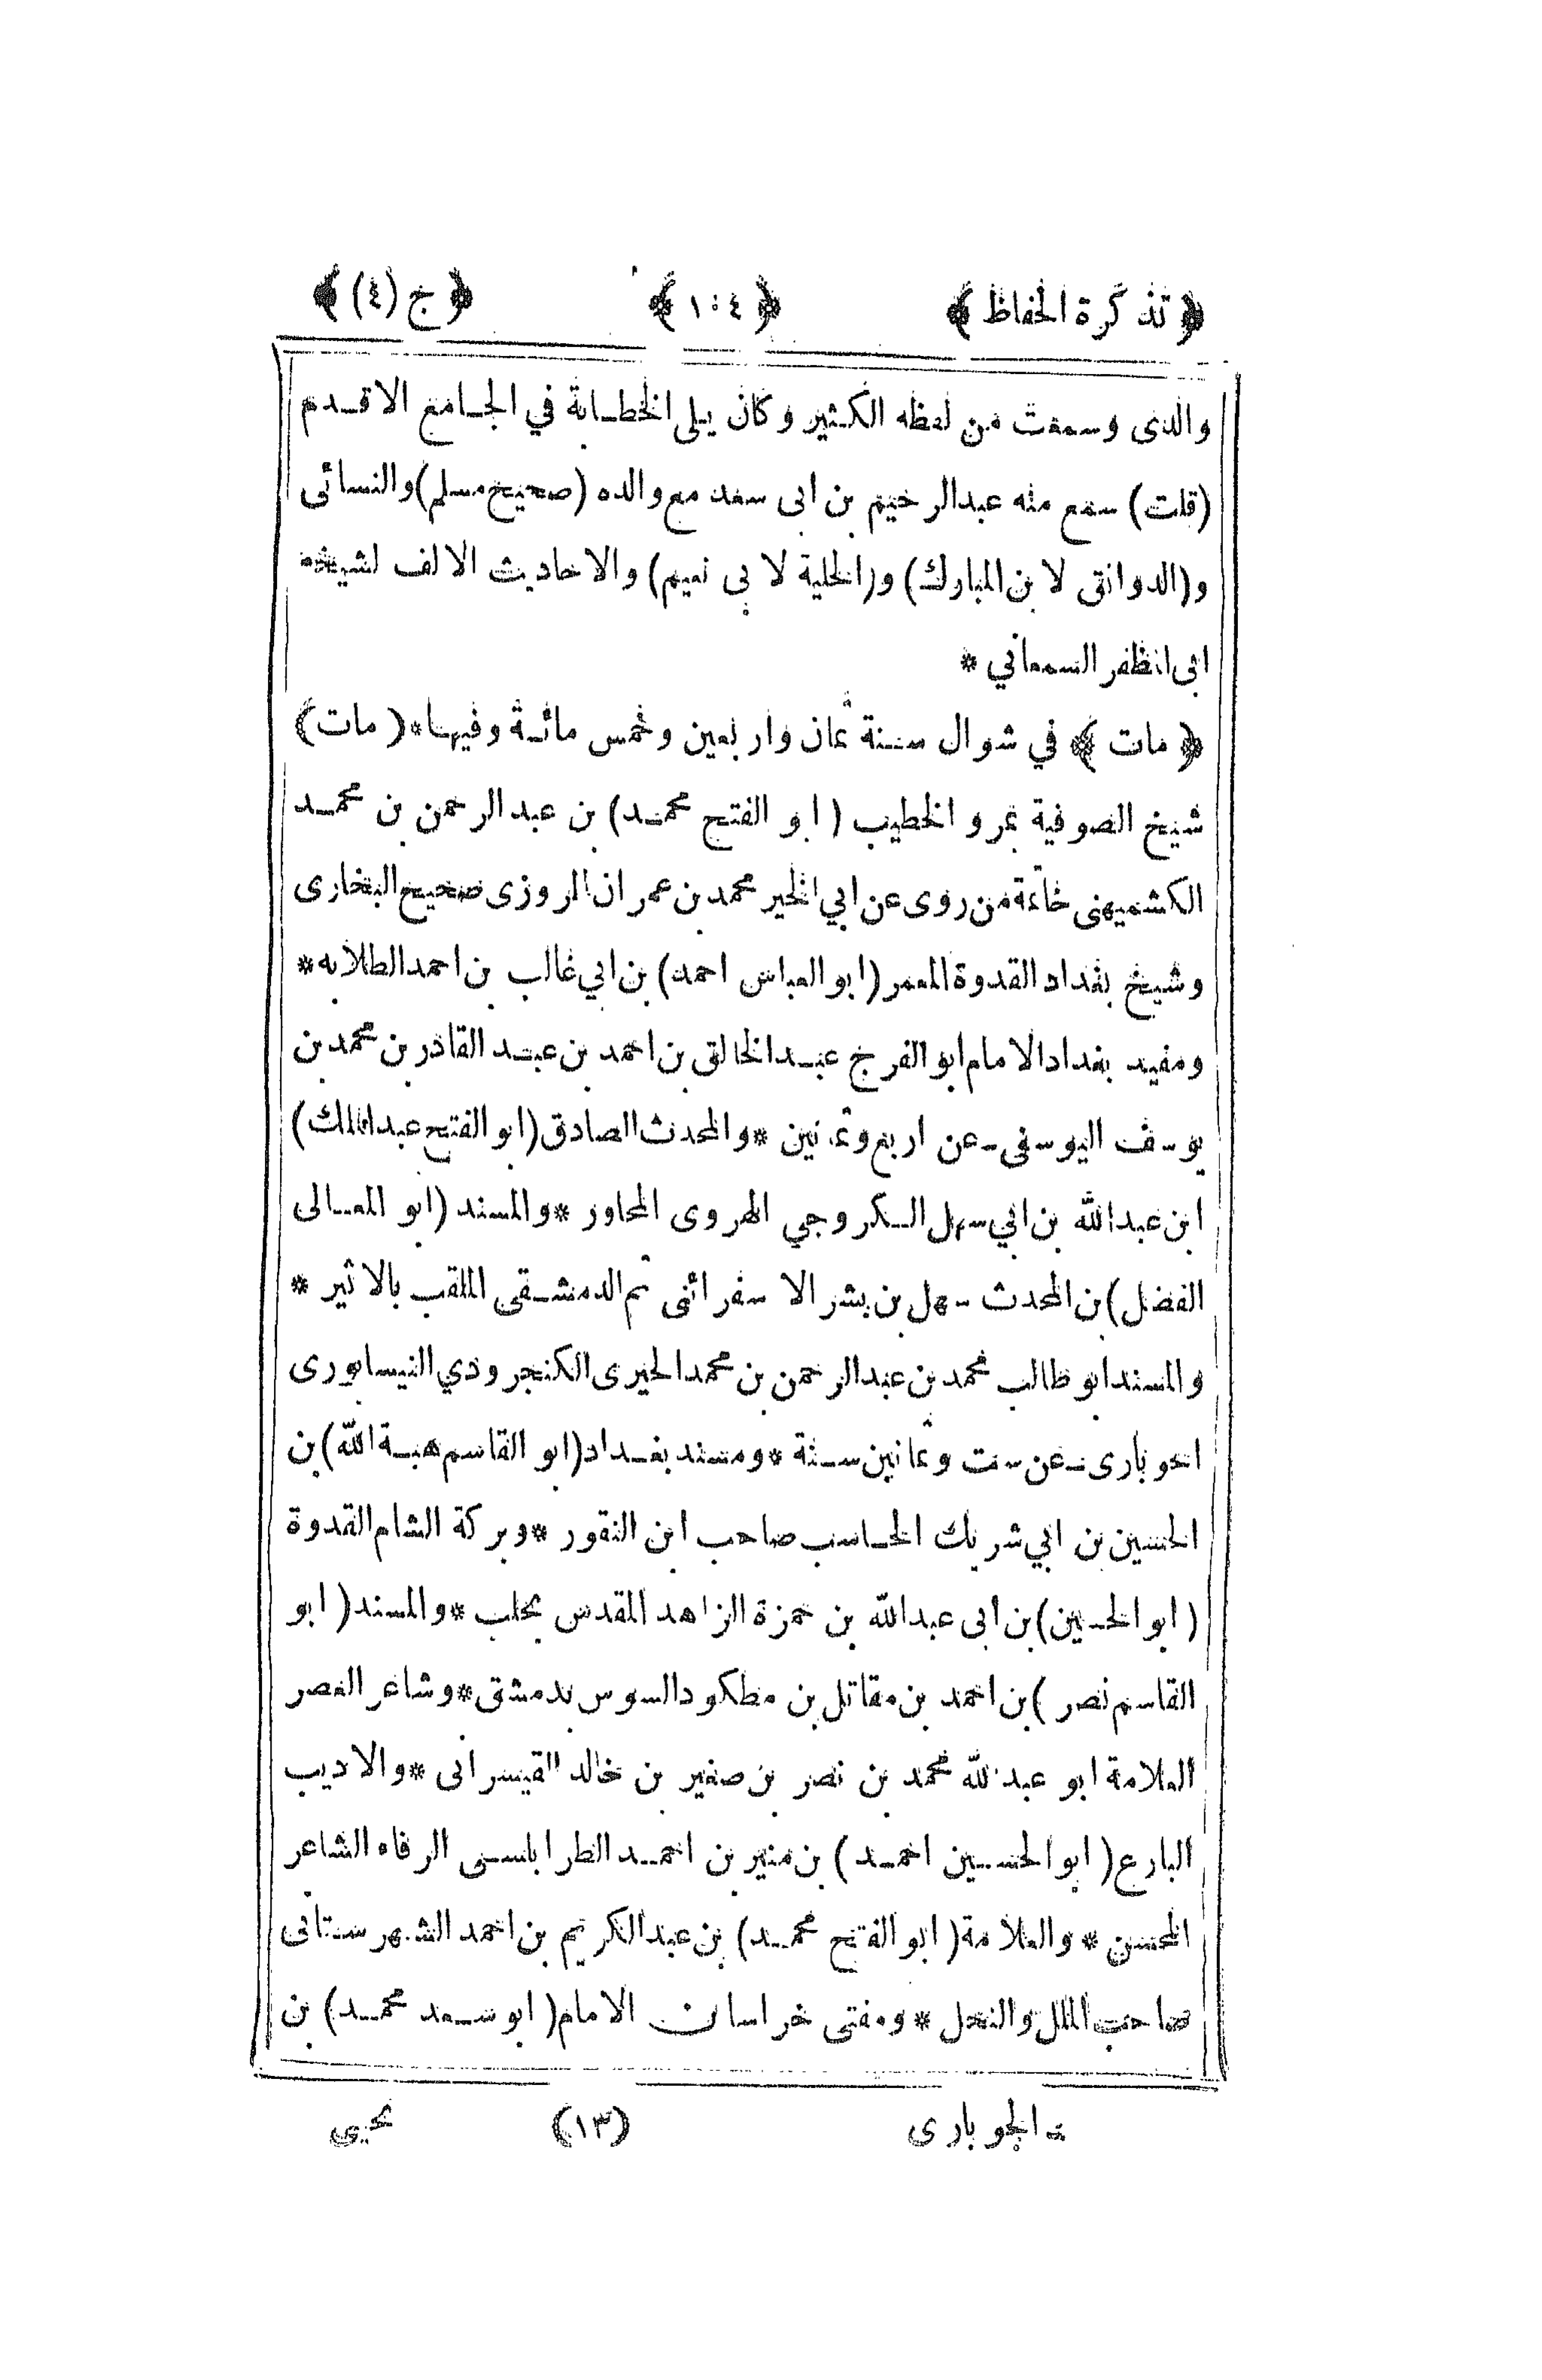 ﴿ تذكرة الحفاظ ﴾ ﴿ ١:٤ ﴾ ﴿ ج (٤) ﴾
والدى وسمعت من لفظه الكثير وكان يلى الخطابة في الجامع الاقدم
(قلت) سمع منه عبدالرحيم بن ابى سعد مع والده (صحيح مسلم) والنسائى
و(الدوانق لابن المبارك) و(الحلية لابى نعيم) والاحاديث الالف لشيخه
ابى المظفر السمعاني *
﴿ مات ﴾ في شوال سنة ثمان واربعين وخمس مائة وفيها * (مات)
شيخ الصوفية بمرو الخطيب (ابو الفتح محمد) بن عبدالرحمن بن محمد
الكشميهنى خاتمة من روى عن ابي الخير محمد بن عمران المروزى صحيح البخارى
وشيخ بغداد القدوة المعمر (ابو العباس احمد) بن ابي غالب بن احمد الطلابه *
ومفيد بغداد الامام ابو الفرج عبد الخالق بن احمد بن عبد القادر بن محمد بن
يوسف اليوسفى ـ عن اربع وثمانين * والمحدث الصادق (ابو الفتح عبدالملك)
ابن عبدالله بن ابي سهل الكروجي الهروى المجاور * والمسند (ابو المعالى
الفضل) بن المحدث سهل بن بشر الاسفرائنى ثم الدمشقى الملقب بالاثير *
والمسند ابو طالب محمد بن عبدالرحمن بن محمد الحيرى الكنجروذي النيسابورى
الحوبارى ـ عن ست وثمانين سنة * ومسند بغداد (ابو القاسم هبة الله) بن
الحسين بن ابي شريك الحاسب صاحب ابن النقور * وبركة الشام القدوة
(ابو الحسين) بن ابى عبدالله بن حمزة الزاهد المقدس بحلب * والمسند (ابو
القاسم نصر) بن احمد بن مقاتل بن مطكود السوس بدمشق * وشاعر العصر
العلامة ابو عبد الله محمد بن نصر بن صغير بن خالد القيسرانى * والاديب
البارع (ابو الحسين احمد) بن منير بن احمد الطرابلسى الرفاه الشاعر
المحسن * والعلامة (ابو الفتح محمد) بن عبدالكريم بن احمد الشهرستانى
صاحب الملل والنحل * ومفتى خراسان الامام (ابو سعد محمد) بن
ـ الجوبارى (١٣) يحيى